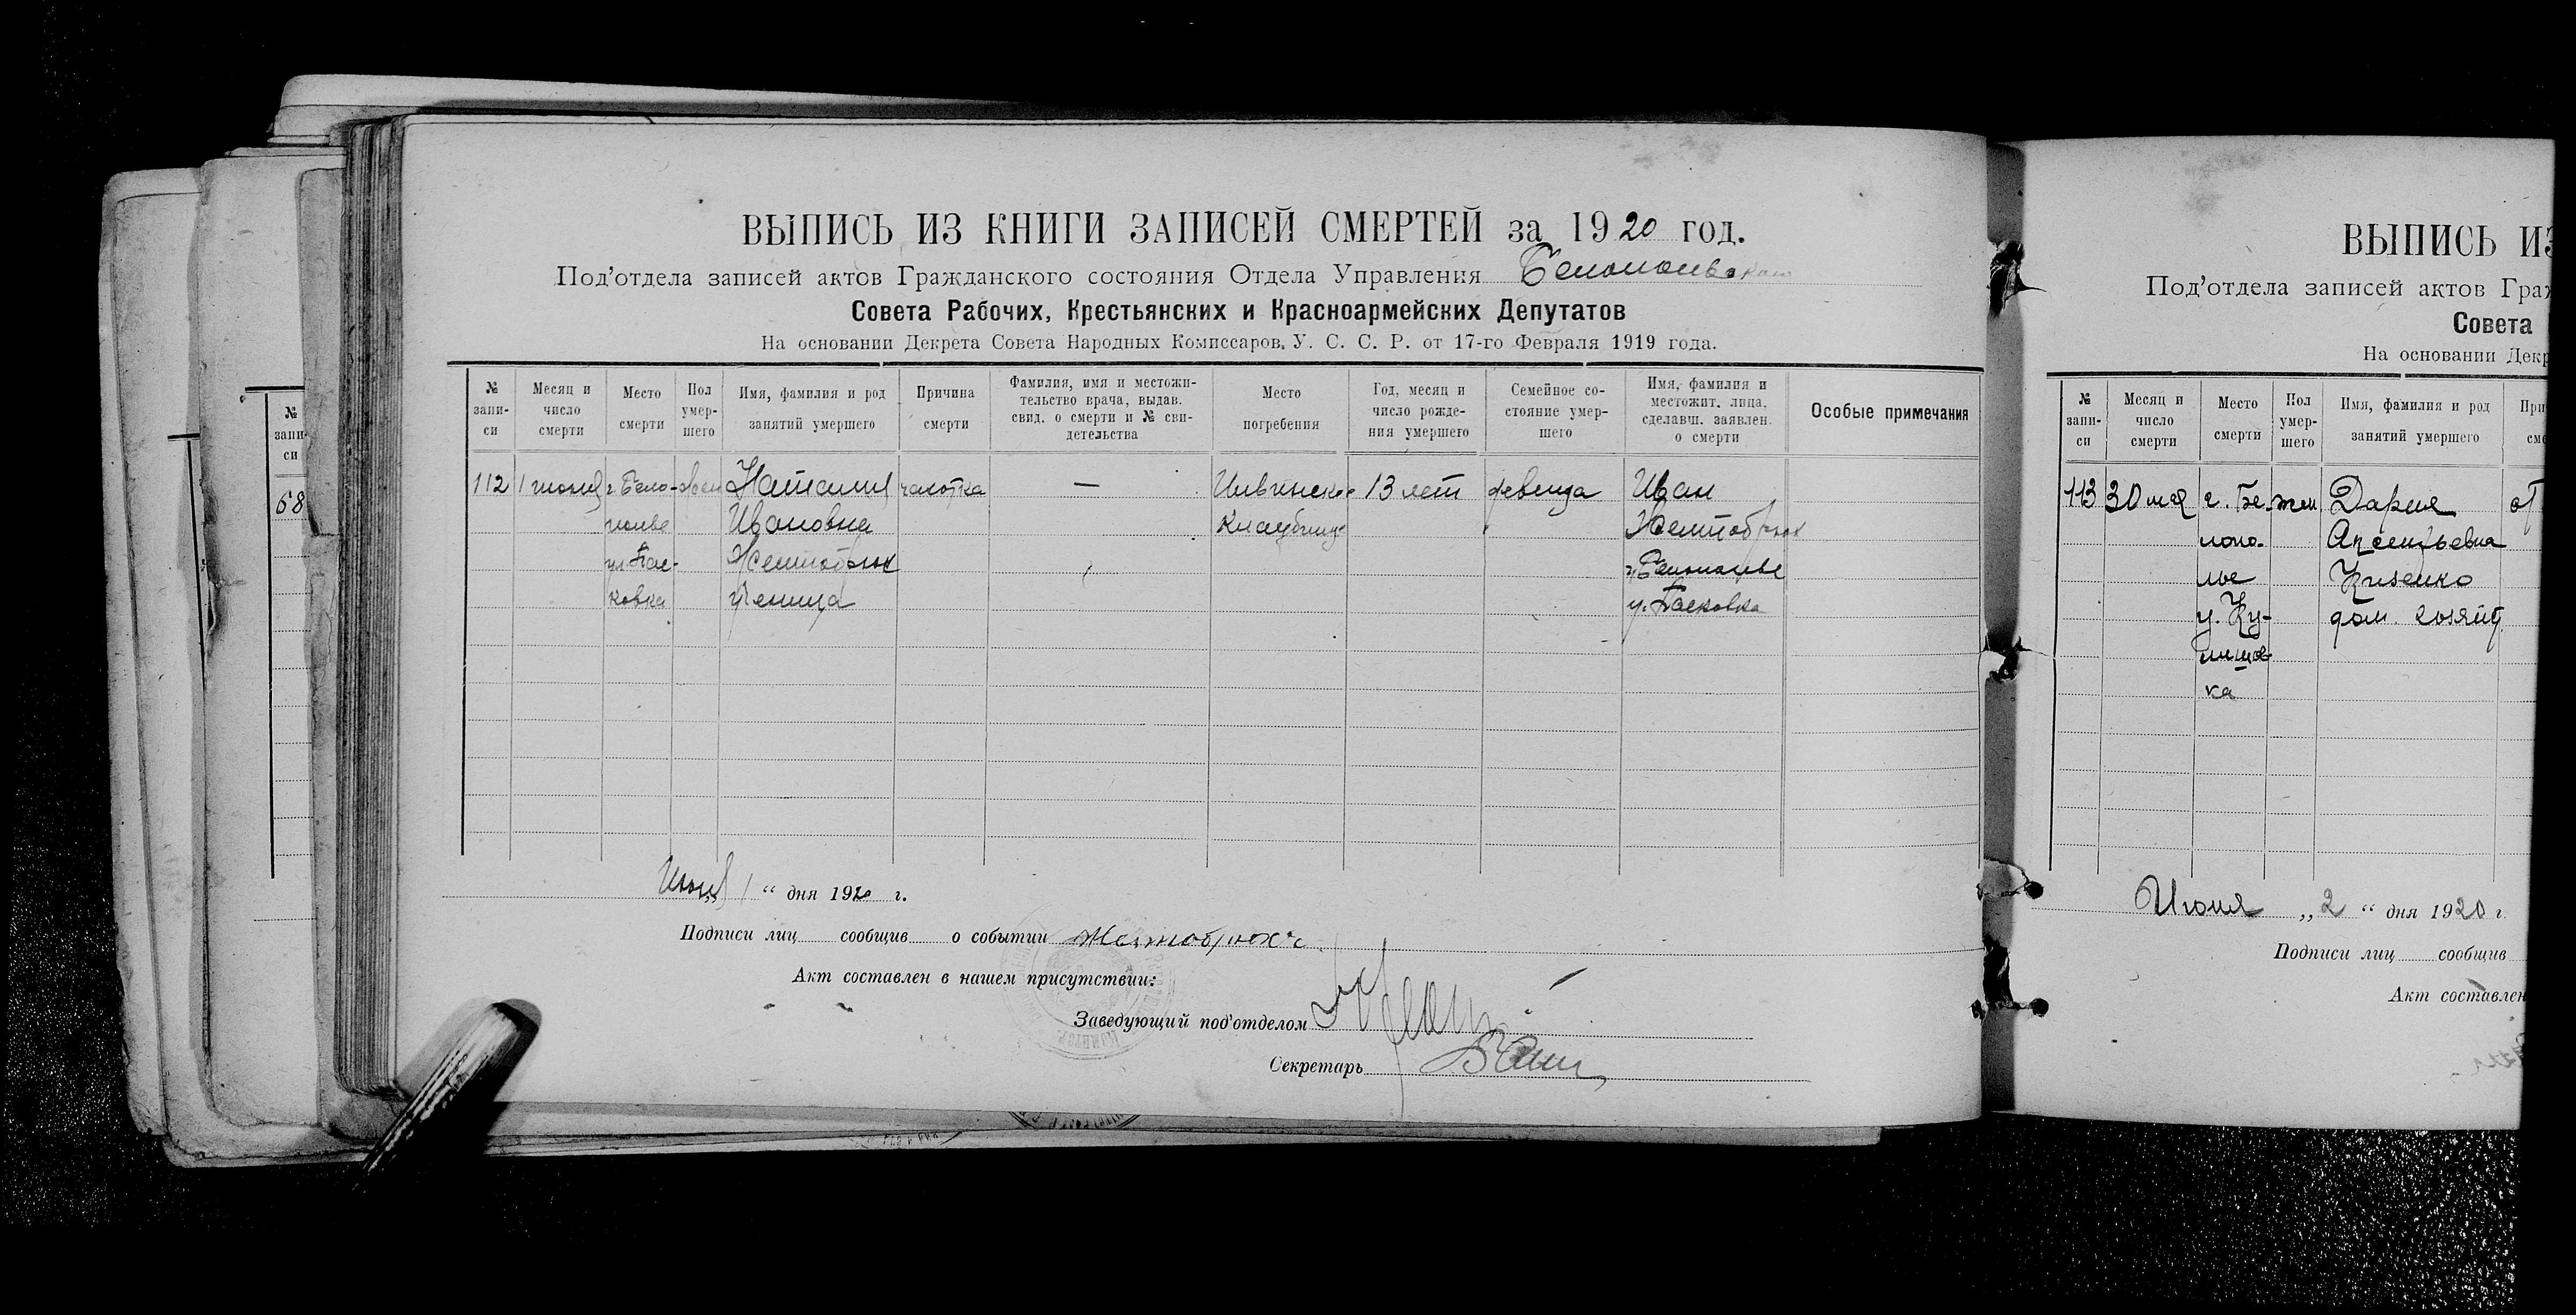 ВЫПИСЬ ИЗ КНИГИ ЗАПИСЕЙ СМЕРТЕЙ за 1920 год.
Под'отдела записей актов Гражданского состояния Отдела Управления Белопольского
Совета Рабочих, Крестьянских и Красноармейских Депутатов
На основании Декрета Совета Народных Комиссаров, У. С. С. Р. от 17-го Февраля 1919 года.
№ запи-си
Месяц и число смерти
Место смерти
Пол умер-шего
Имя, фамилия и род занятий умершего
Причина смерти
Фамилия, имя и местожи-тельство врача, выдав. свид. о смерти и № сви-детельства
Место погребения
Год, месяц и число рожде-ния умершего
Семейное со-стояние умер-шего
Имя, фамилия и местожит. лица, сделавш. заявлен. о смерти
Особые примечания
112 1 июня г. Бело- жен Наталия чахотка — Ильинско 13 лет девица Иван
полье Ивановна Желтобрюх
ул. Пес- Желтобрюх г. Белополье
ковка ученица у. Песковка
Июня 1 " дня 1920 г.
Подписи лиц сообщив о событии Желтобрюх
Акт составлен в нашем присутствии:
Заведующий под'отделом
Секретарь
№ запи-си
68
ВЫПИСЬ ИЗ
Под'отдела записей актов Граж
Совета
На основании Декр
№ запи-си
Месяц и число смерти
Место смерти
Пол умер-шего
Имя, фамилия и род занятий умершего
При
сме
113 30 мая г. Бе- жен Дария от
лопо- Арсентьевна
лье Кизенко
у. Ку- дом. хозяйс
лишов-
ка
Июня „ 2 " дня 1920 г.
Подписи лиц сообщив
Акт составлен